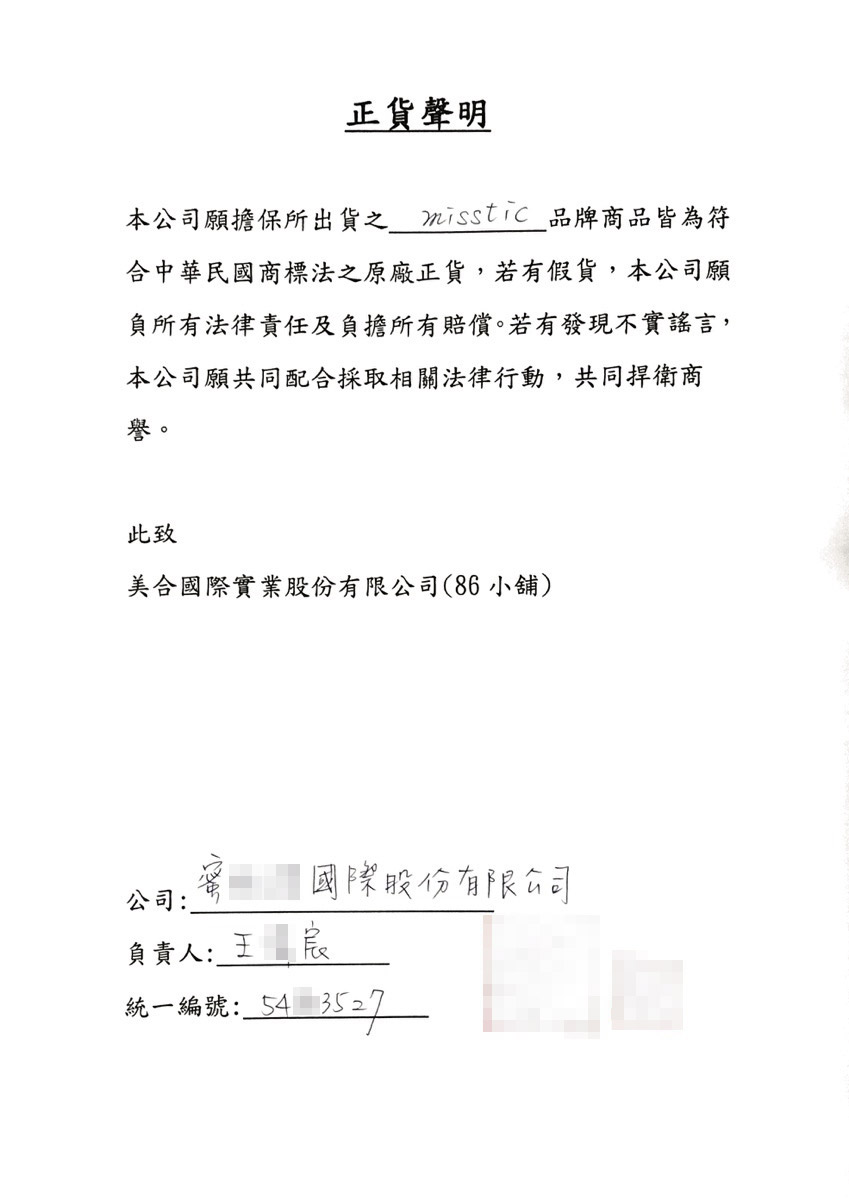 正貨聲明
本公司願擔保所出貨之 misstic 品牌商品皆為符
合中華民國商標法之原廠正貨，若有假貨，本公司願
負所有法律責任及負擔所有賠償。若有發現不實謠言，
本公司願共同配合採取相關法律行動，共同捍衛商
譽。
此致
美合國際實業股份有限公司(86小舖)
公司:蜜 國際股份有限公司
負責人:王 宸
統一編號:54 3527